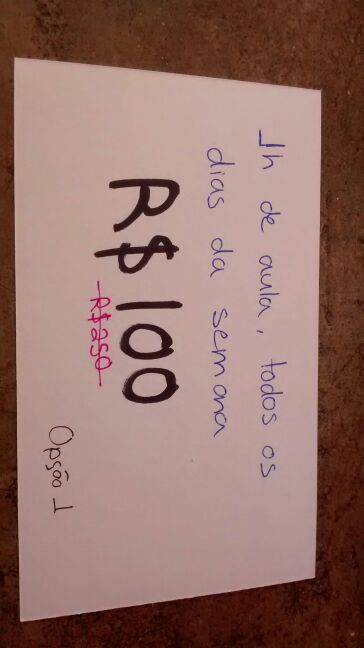 1h de aula, todos os
dias da semana
R$100
R$250
Opsão 1